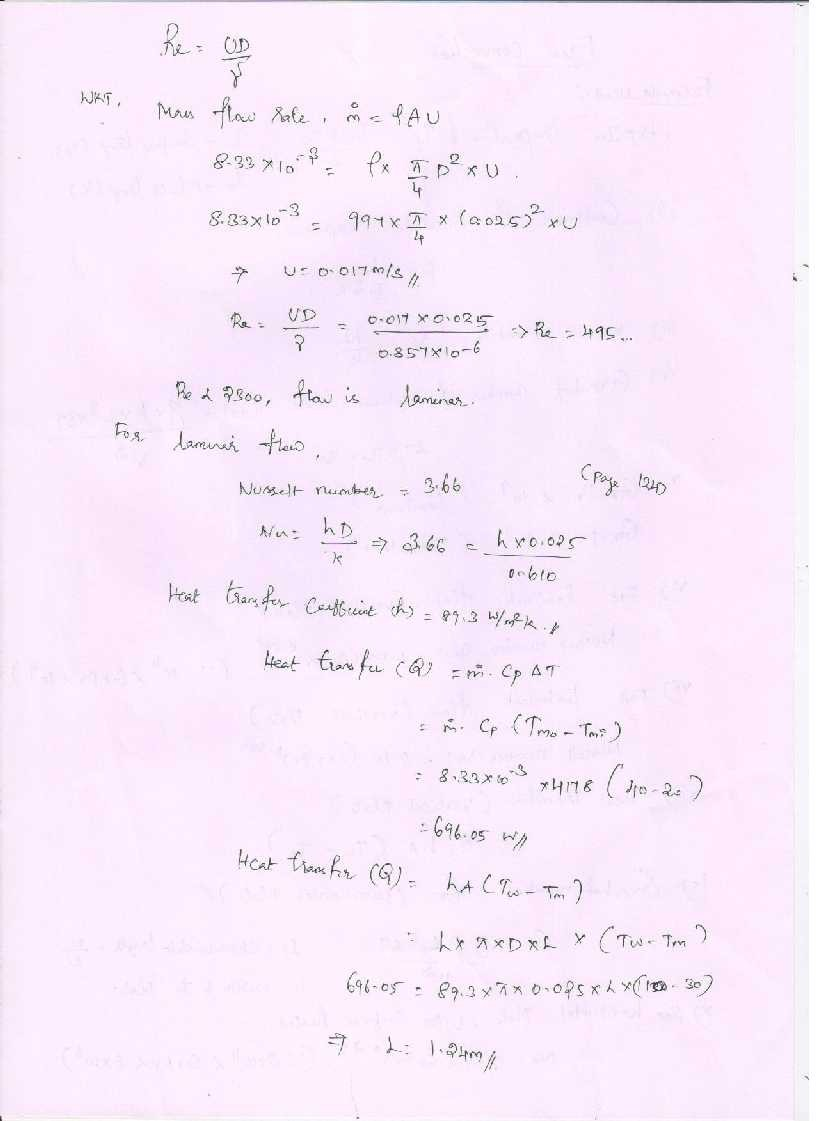 Re = UD/γ
WKT,
Mass flow rate, ṁ = ρAU
8.33 × 10⁻³ = ρ × π/4 D² × U.
8.33×10⁻³ = 997 × π/4 × (0.025)² × U
⇒ U = 0.017 m/s //
Re = UD/γ = 0.017 × 0.025 / 0.857×10⁻⁶ ⇒ Re = 495...
Re < 2300, flow is laminar.
For laminar flow,
Nusselt number = 3.66 (page 124)
Nu = hD/k ⇒ 3.66 = h × 0.025 / 0.610
Heat transfer coefficient (h) = 89.3 W/m²K. //
Heat transfer (Q) = ṁ. Cp ΔT
= ṁ. Cp (Tmo - Tmi)
= 8.33×10⁻³ × 4178 (40-20)
= 696.05 W //
Heat transfer (Q) = hA (Tw - Tm)
= h × π × D × L × (Tw - Tm)
696.05 = 89.3 × π × 0.025 × L × (100 - 30)
⇒ L = 1.24m //